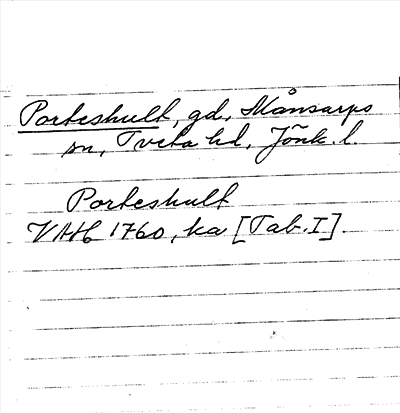 Porteshult, gd, Månsarps
sn, Tveta hd, Jönk. l.
Porteshult
VAH 1760, ka [Tab. I].